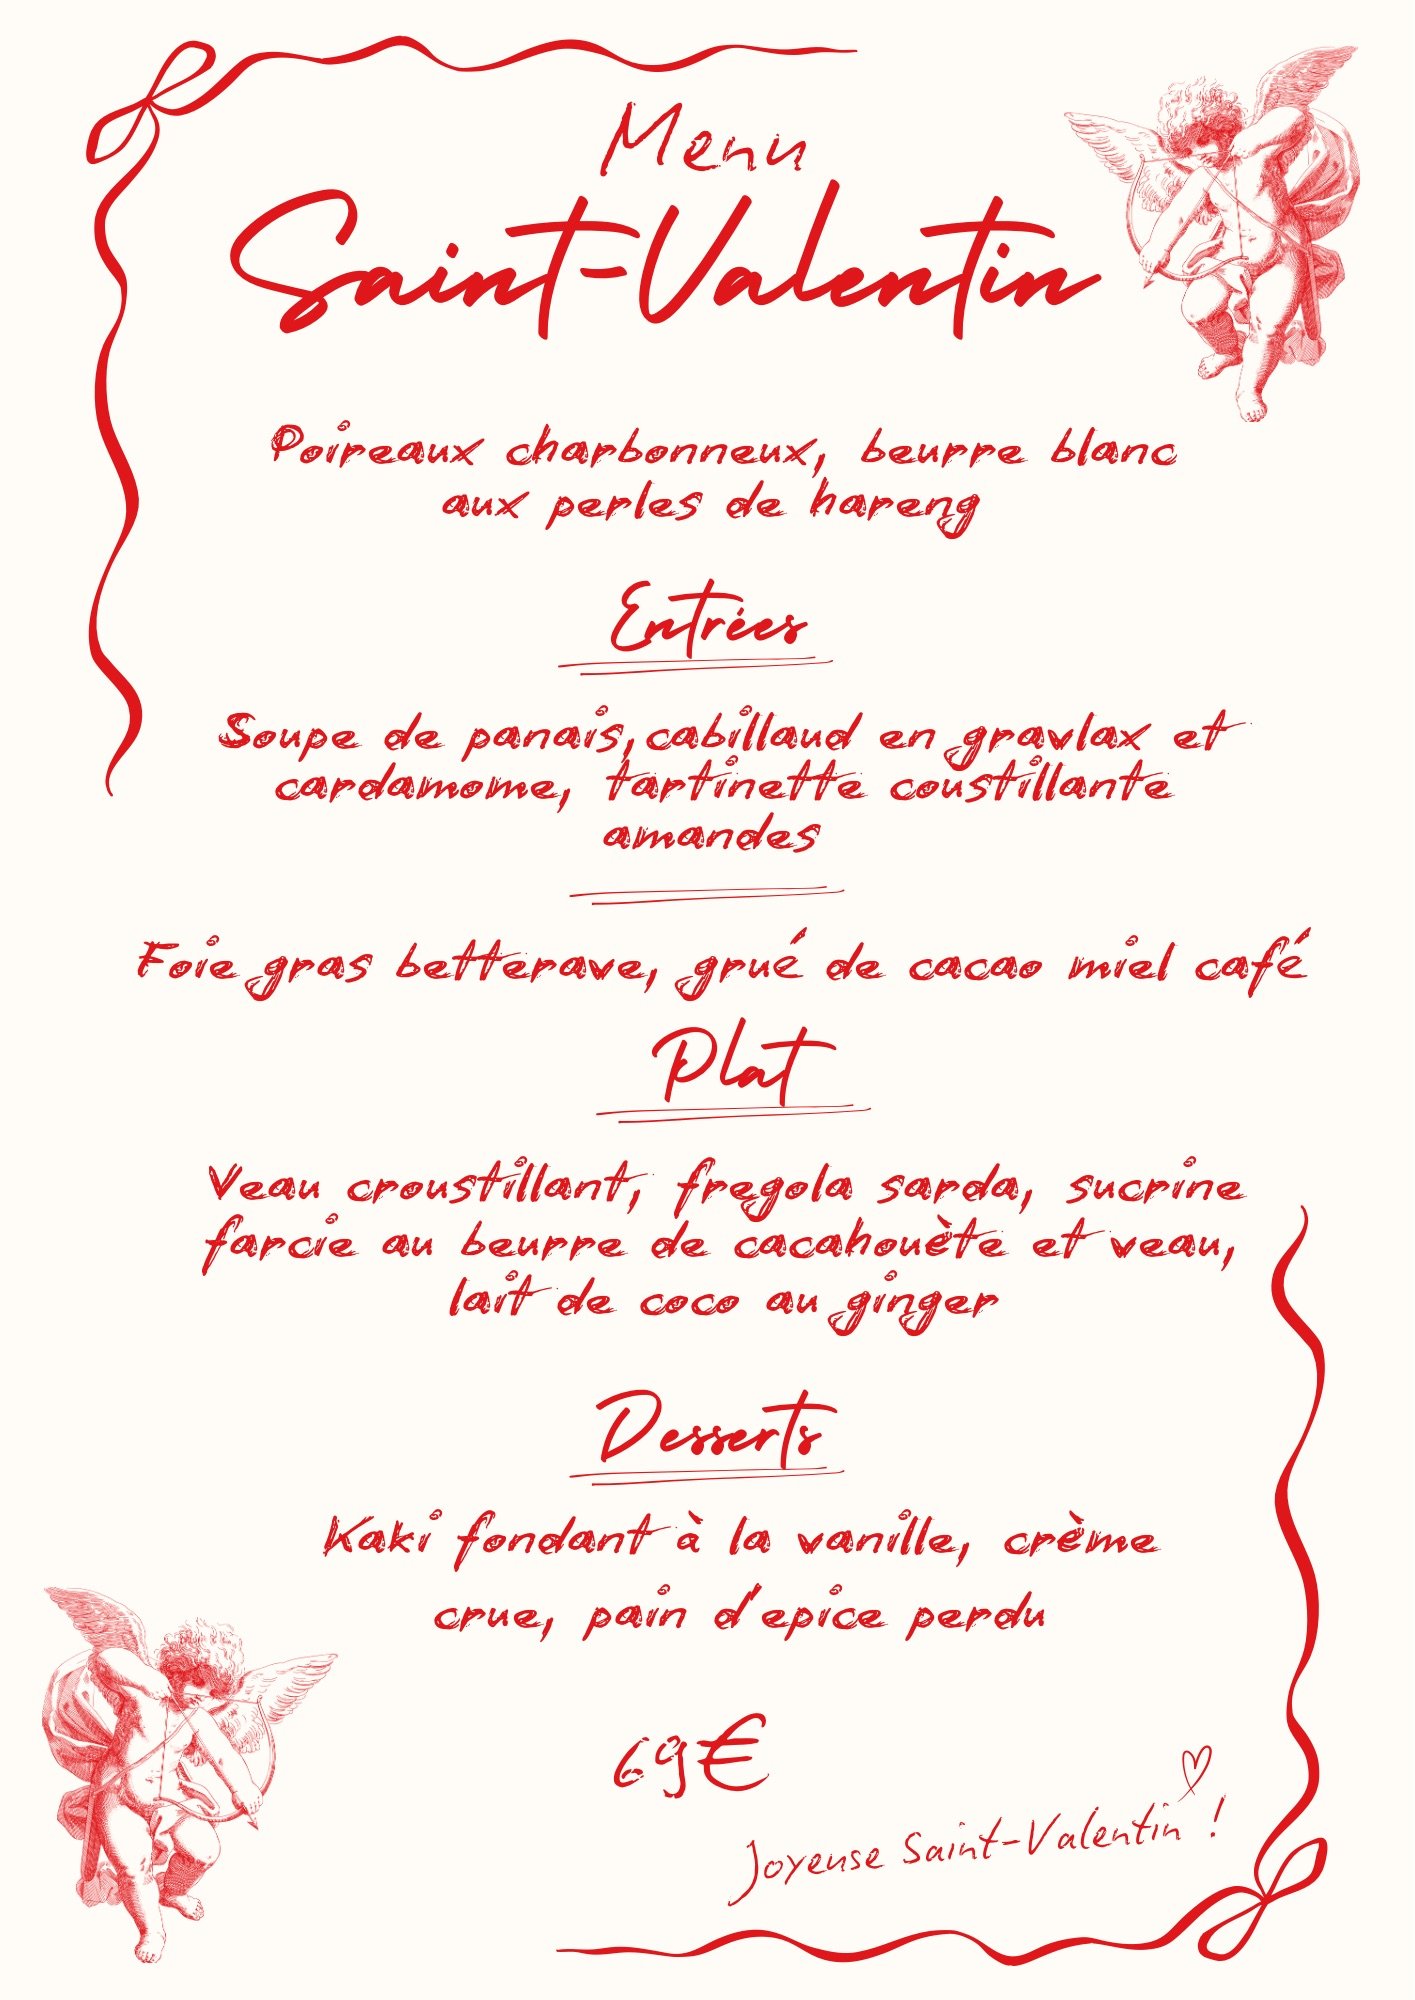 Menu
Saint-Valentin
Poireaux charbonneux, beurre blanc
aux perles de hareng
Entrées
Soupe de panais, cabillaud en gravlax et
cardamome, tartinette coustillante
amandes
Foie gras betterave, grué de cacao miel café
Plat
Veau croustillant, fregola sarda, sucrine
farcie au beurre de cacahouète et veau,
lait de coco au ginger
Desserts
Kaki fondant à la vanille, crème
crue, pain d'epice perdu
69€
Joyeuse Saint-Valentin !